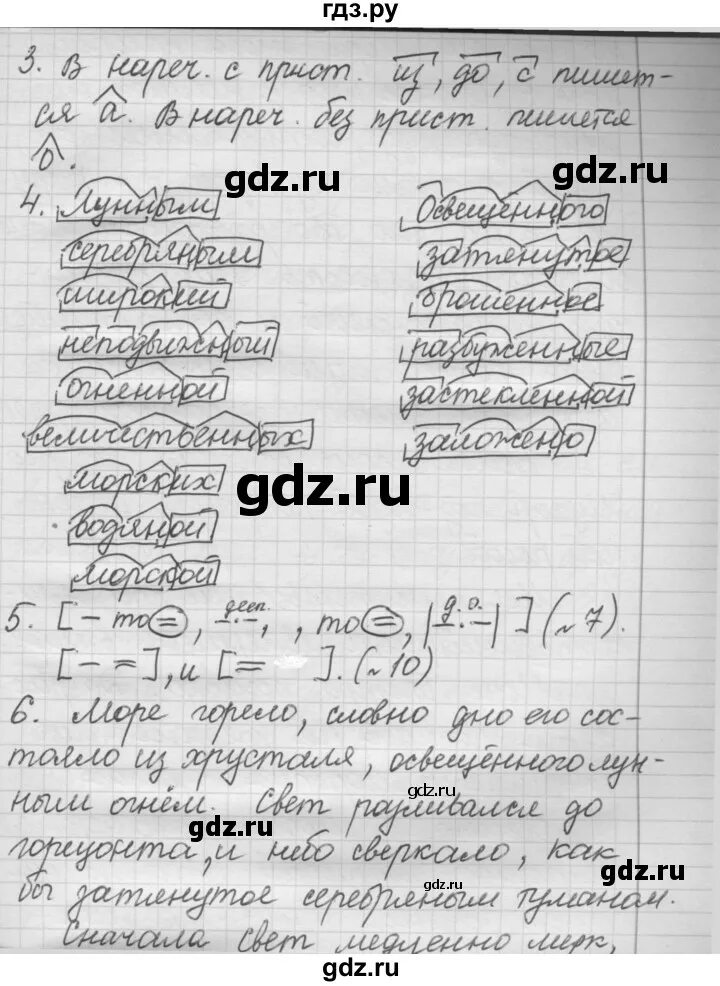 гдз.ру
3. В нареч. с прист. из, до, с пишет-
ся а. В нареч. без прист. пишется
о.
gdz.ru gdz.ru
4. Лунным Освещённого
серебряным затянутое
широкий брошенное
неподвижный разбуженные
огненной застекленной
величественных заложено
морских
gdz.ru
водяной
морской
5. [– то =, дееп., , то =, |д.о.| ] (~7).
[– =], и [= ]. (~10)
6. Море горело, словно дно его сос-
тояло из хрусталя, освещённого лун-
gdz.ru
ным огнём. Свет разливался до
gdz.ru
горизонта, и небо сверкало, как
бы затянутое серебряным туманом.
gdz.ru
Сначала свет медленно мерк,
gdz.ru